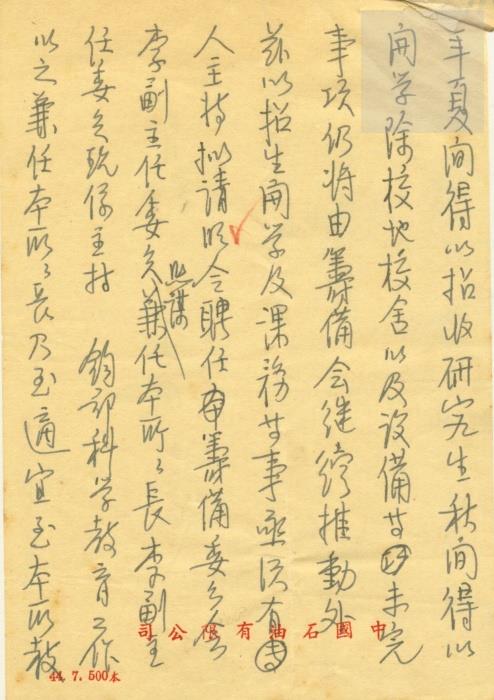 年夏间得以招收研究生秋间得以
开学除校地校舍以及设备等項未完
事项仍将由籌備会继续推動外
兹以招生開学及课務等事亟须有專
人主持拟请 明令聘任本籌備委員会
李副主任委員熙谋兼任本所所長李副主
任委員現係主持 鈞部科学教育工作
以之兼任本所所長乃至適宜至本所教
司公限有油石國中
44.7.500本